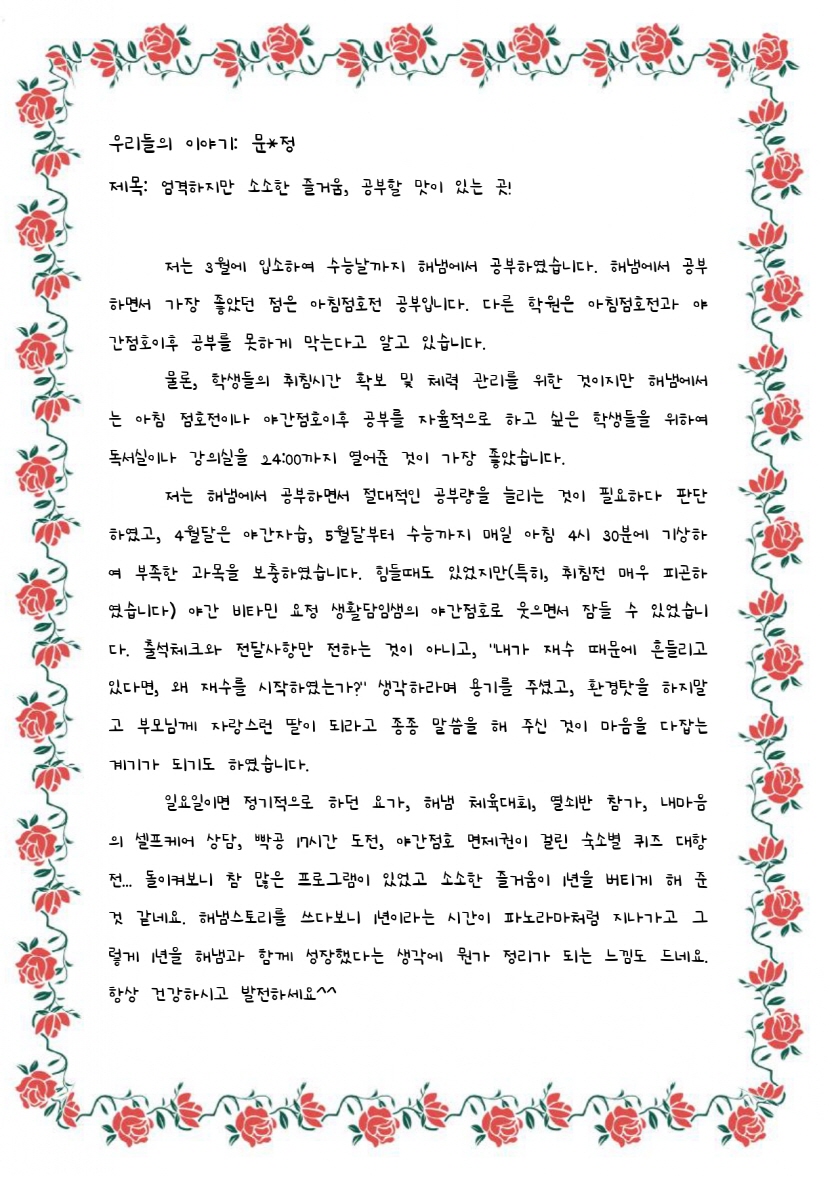 우리들의 이야기: 문*정
제목: 엄격하지만 소소한 즐거움, 공부할 맛이 있는 곳!
저는 3월에 입소하여 수능날까지 해냄에서 공부하였습니다. 해냄에서 공부
하면서 가장 좋았던 점은 아침점호전 공부입니다. 다른 학원은 아침점호전과 야
간점호이후 공부를 못하게 막는다고 알고 있습니다.
물론, 학생들의 취침시간 확보 및 체력 관리를 위한 것이지만 해냄에서
는 아침 점호전이나 야간점호이후 공부를 자율적으로 하고 싶은 학생들을 위하여
독서실이나 강의실을 24:00까지 열어준 것이 가장 좋았습니다.
저는 해냄에서 공부하면서 절대적인 공부량을 늘리는 것이 필요하다 판단
하였고, 4월달은 야간자습, 5월달부터 수능까지 매일 아침 4시 30분에 기상하
여 부족한 과목을 보충하였습니다. 힘들때도 있었지만(특히, 취침전 매우 피곤하
였습니다) 야간 비타민 요정 생활담임샘의 야간점호로 웃으면서 잠들 수 있었습니
다. 출석체크와 전달사항만 전하는 것이 아니고, "내가 재수 때문에 흔들리고
있다면, 왜 재수를 시작하였는가?" 생각하라며 용기를 주셨고, 환경탓을 하지말
고 부모님께 자랑스런 딸이 되라고 종종 말씀을 해 주신 것이 마음을 다잡는
계기가 되기도 하였습니다.
일요일이면 정기적으로 하던 요가, 해냄 체육대회, 열쇠반 참가, 내마음
의 셀프케어 상담, 빡공 17시간 도전, 야간점호 면제권이 걸린 숙소별 퀴즈 대항
전... 돌이켜보니 참 많은 프로그램이 있었고 소소한 즐거움이 1년을 버티게 해 준
것 같네요. 해냄스토리를 쓰다보니 1년이라는 시간이 파노라마처럼 지나가고 그
렇게 1년을 해냄과 함께 성장했다는 생각에 뭔가 정리가 되는 느낌도 드네요.
항상 건강하시고 발전하세요^^